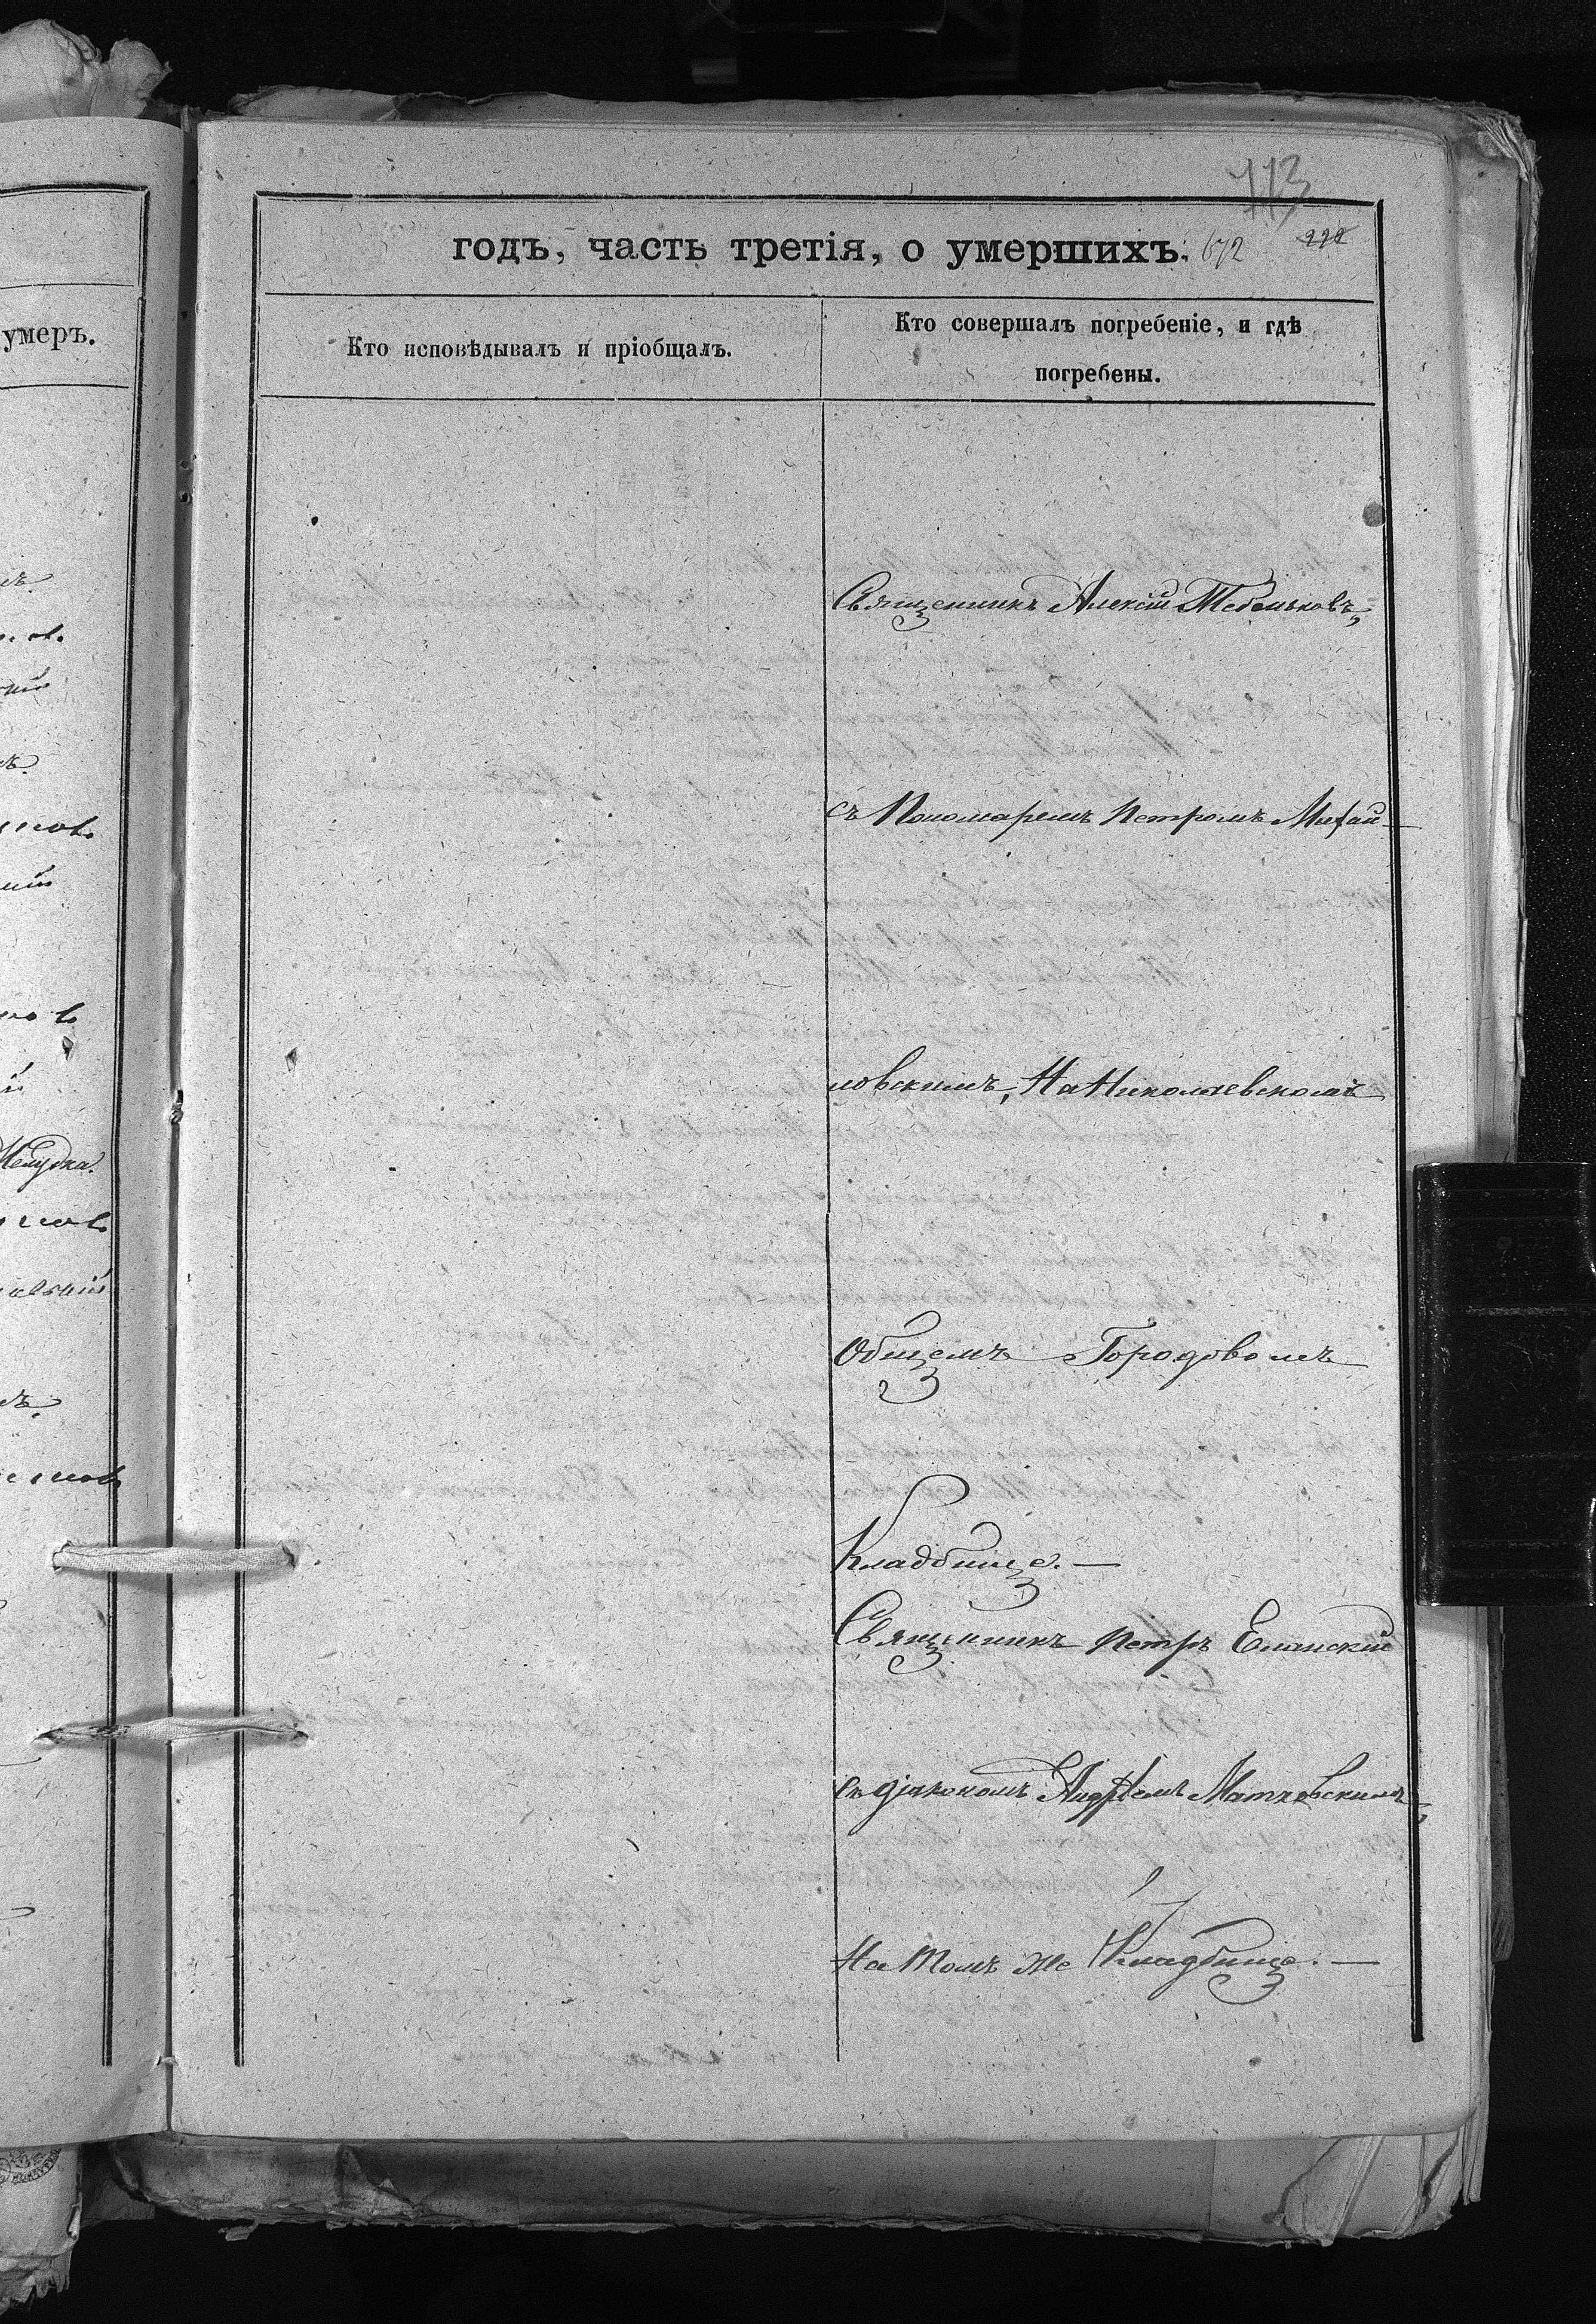 113
годъ, часть третія, о умершихъ.
672
умеръ.
Кто исповѣдывалъ и пріобщалъ.
Кто совершалъ погребеніе, и гдѣ
погребены.
Священникъ Алексій Тебеньковъ,
съ Пономаремъ Петромъ Михай-
ловскимъ, На Николаевскомъ
Общемъ Городовомъ
Кладбище. —
Священникъ Петръ Еланскій
съ діакономъ Андреемъ Матковскимъ,
На томъ же Кладбище. —